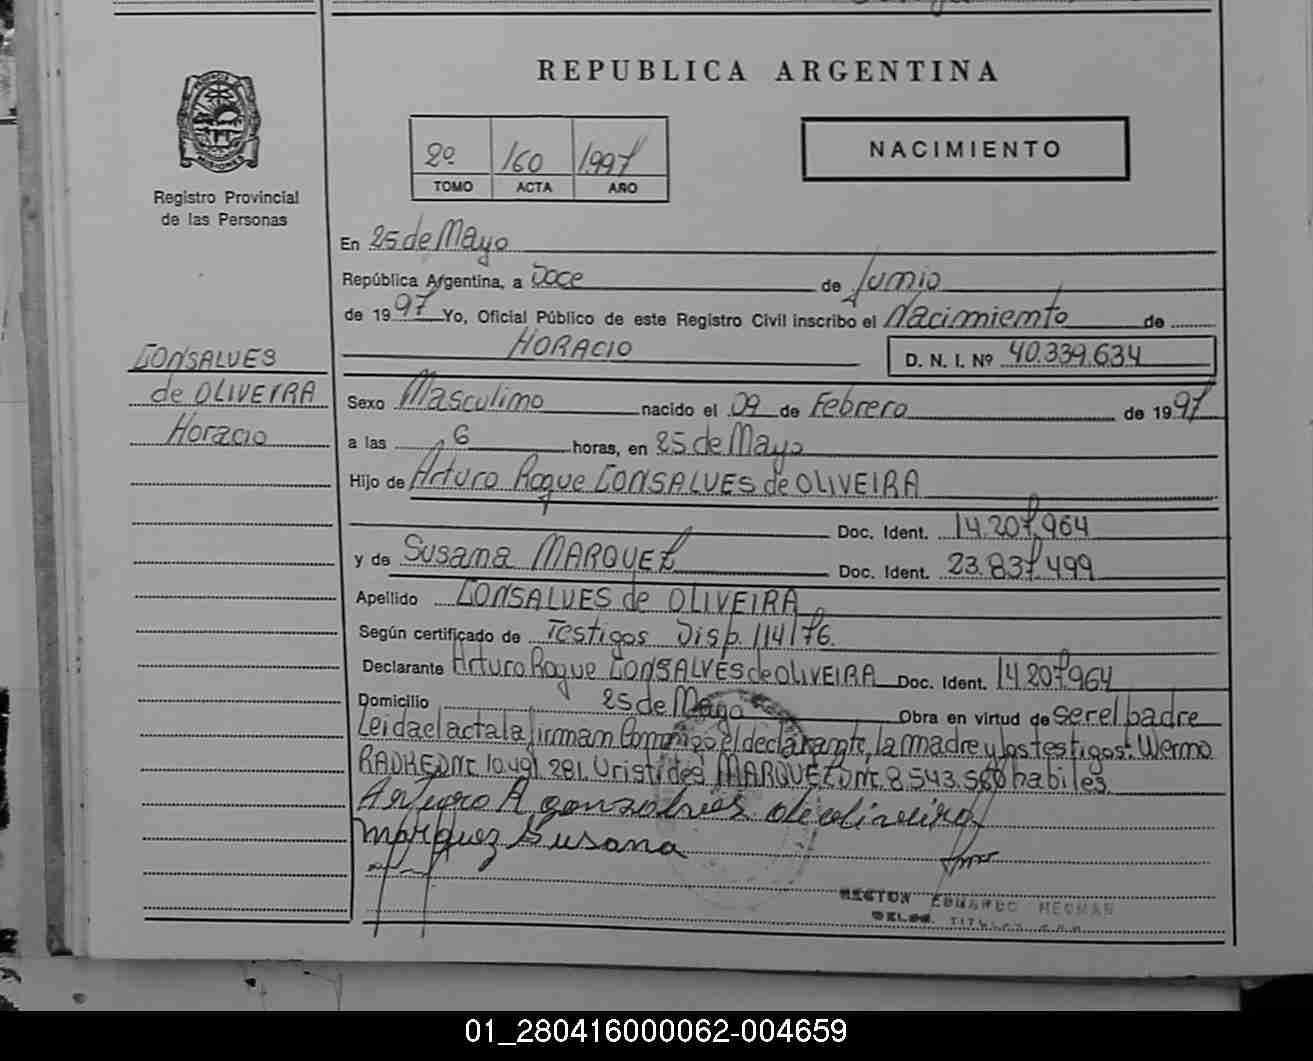 REPUBLICA ARGENTINA
2º 160 1997
TOMO ACTA AÑO
NACIMIENTO
MISIONES
Registro Provincial
de las Personas
En 25 de Mayo
República Argentina, a Doce de Junio
de 1997 Yo, Oficial Público de este Registro Civil inscribo el Nacimiento de
HORACIO
D. N. I. Nº 40.339.634
GONSALVES
de OLIVEIRA
Horacio
Sexo Masculino nacido el 09 de Febrero de 1997
a las 6 horas, en 25 de Mayo
Hijo de Arturo Roque GONSALVES de OLIVEIRA
Doc. Ident. 14.207.964
y de Susana MARQUEZ Doc. Ident. 23.837.499
Apellido GONSALVES de OLIVEIRA
Según certificado de Testigos Disp. 114/76.
Declarante Arturo Roque GONSALVES de OLIVEIRA Doc. Ident. 14.207.964
Domicilio 25 de Mayo Obra en virtud de ser el padre
Leida el acta la firman Conmigo el declarante, la madre y los testigos: Wermo
MARQUEZ DNI. 8.543.560 habiles.
Arturo R gonsalves de oliveira
Marquez Susana
EDUARDO
01_280416000062-004659